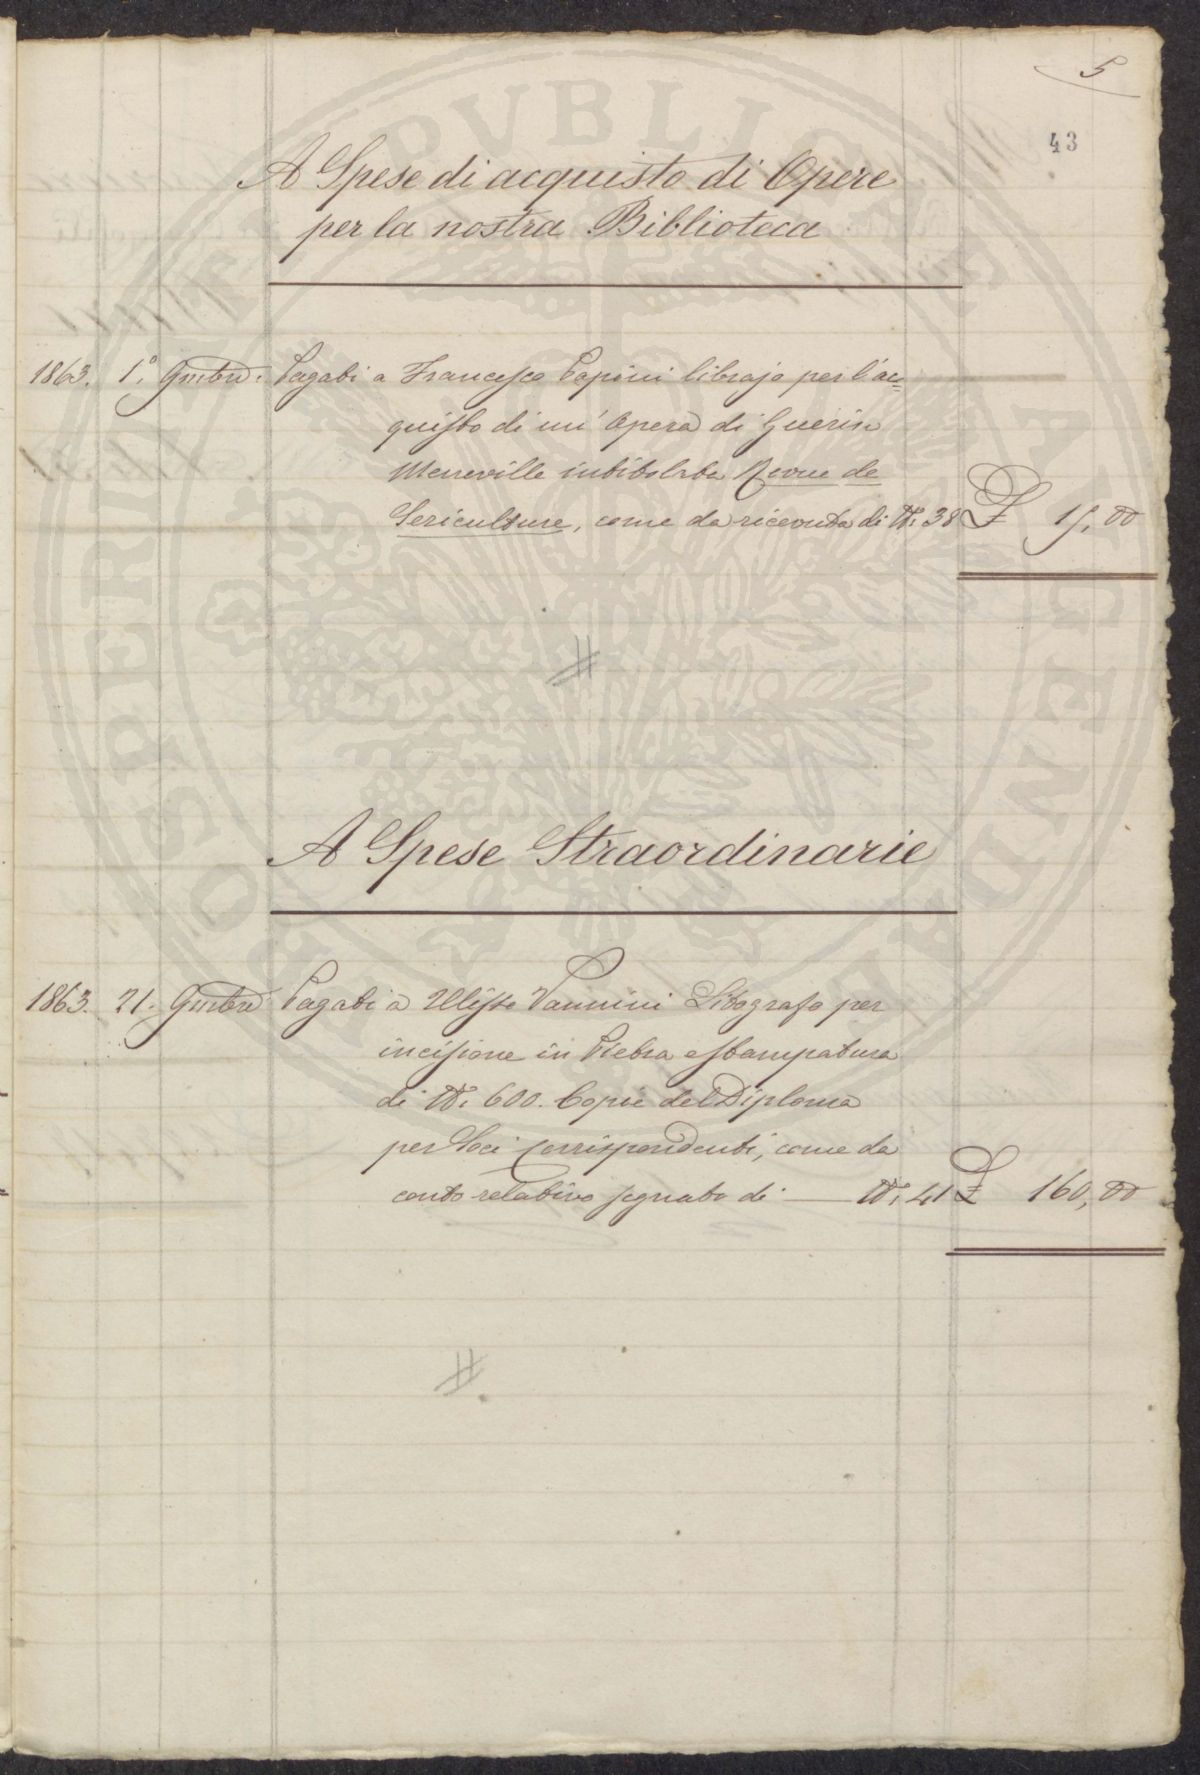 5
43
A Spese di acquisto di Opere
per la nostra Biblioteca
1863. 1° 9mbre: Pagati a Francesco Papini librajo per l'ac=
quisto di un' Opera di Guerin
Meneville intitolata Revue de
Sericulture, come da ricevuta di N. 38 £ 15,00
A Spese Straordinarie
1863. 21. 9mbre Pagati a Ulisse Vannini Litografo per
incisione in Pietra e stampatura
di N. 600. Copie del Diploma
per Soci Corrispondenti, come da
conto relativo segnato di N. 41 £ 160,00
PROSPERITATI PUBLICAE AUGENDAE